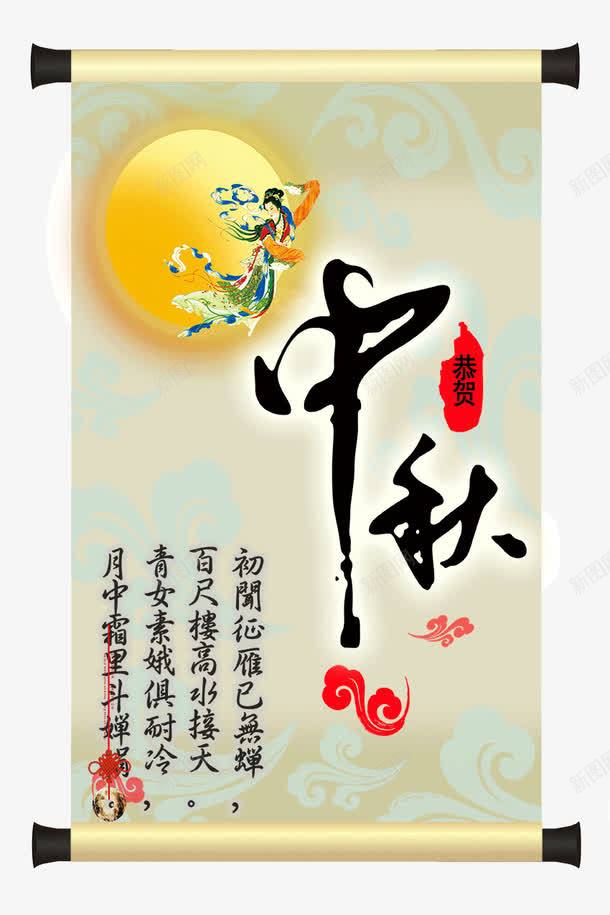 中秋
恭贺
初聞征雁已無蟬，
百尺樓高水接天。
青女素娥俱耐冷，
月中霜里斗嬋娟。